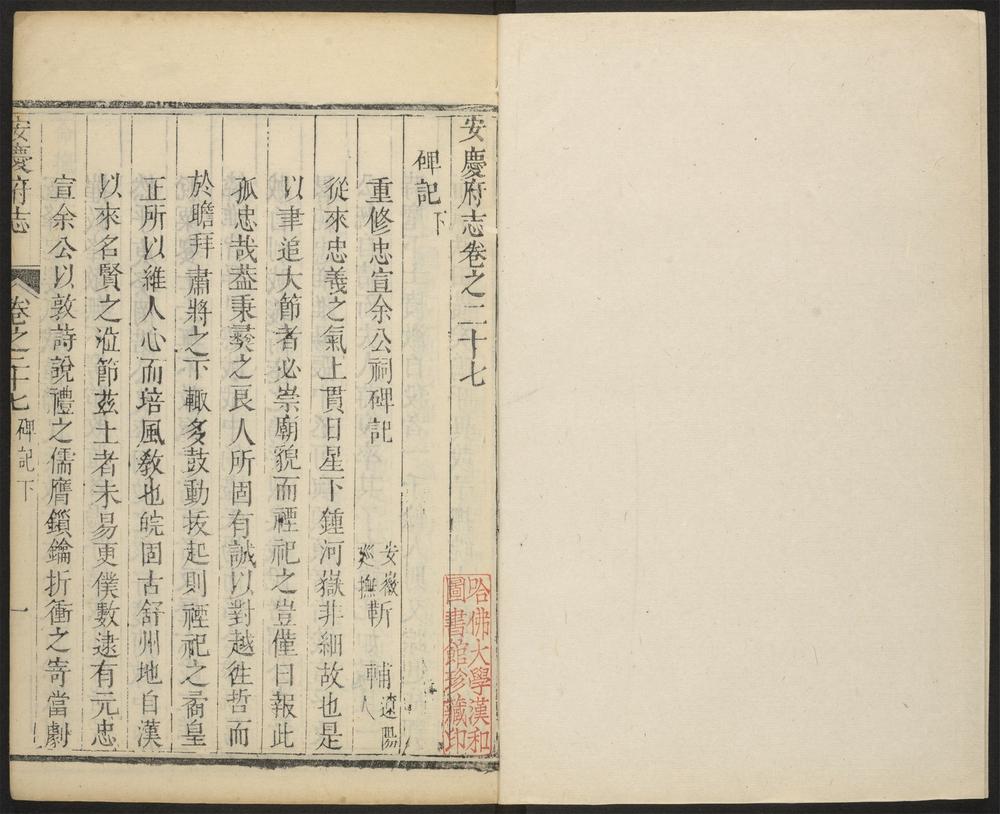 安慶府志卷之二十七
碑記下
重修忠宣余公祠碑記 安徽巡撫靳輔遼陽人
從來忠義之氣上貫日星下鍾河嶽非細故也是
以聿追大節者必崇廟貌而禋祀之豈僅曰報此
孤忠哉葢秉彛之良人所固有誠以對越徃哲而
於瞻拜肅將之下輙多鼓動扳起則禋祀之矞皇
正所以維人心而培風敎也皖固古舒州地自漢
以來名賢之涖節兹土者未易更僕數逮有元忠
宣余公以敦詩說禮之儒膺鎖鑰折衝之寄當劇
安慶府志 卷之二十七 碑記下 一
哈佛大學漢和
圖書館珍藏印